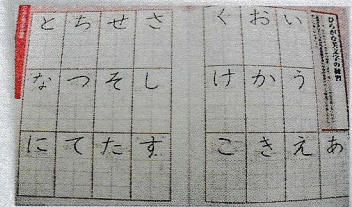 ひらがな美文字の練習
あ
いうえ
おかき
くけこ
さしす
せそた
ちつて
となに